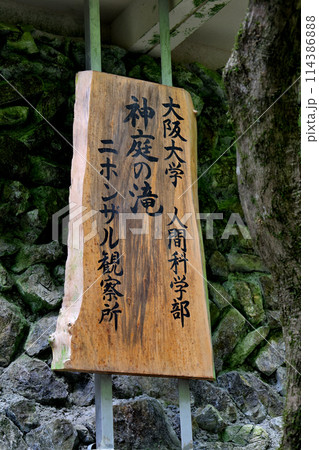 大阪大学 人間科学部
神庭の滝
ニホンザル観察所
PIXTA
pixta.jp - 114386888